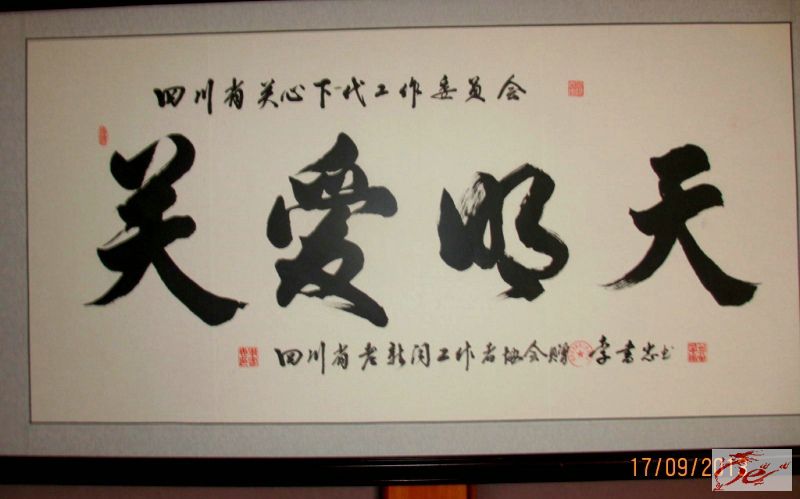 四川省关心下一代工作委员会
关爱明天
四川省老新闻工作者协会赠 李书忠书
17/09/201